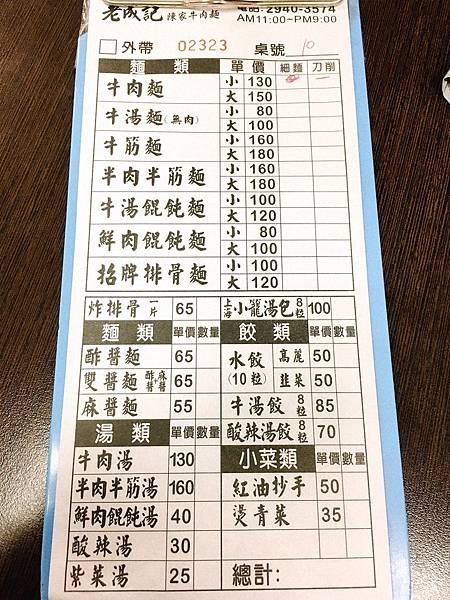 老成記 陳家牛肉麵 電話: 2940-3574
AM11:00~PM9:00
外帶 02323 桌號 10
麵類 單價 細麵 刀削
牛肉麵 小 130
大 150
牛湯麵(無肉) 小 80
大 100
牛筋麵 小 160
大 180
半肉半筋麵 小 160
大 180
牛湯餛飩麵 小 100
大 120
鮮肉餛飩麵 小 80
大 100
招牌排骨麵 小 100
大 120
炸排骨 一片 65
上海小籠湯包 8粒 100
麵類 單價 數量
酢醬麵 65
雙醬麵 酢醬+麻醬 65
麻醬麵 55
湯類 單價 數量
牛肉湯 130
半肉半筋湯 160
鮮肉餛飩湯 40
酸辣湯 30
紫菜湯 25
餃類 單價 數量
水餃(10粒) 高麗 50
韭菜 50
牛湯餃 8粒 85
酸辣湯餃 8粒 70
小菜類 單價 數量
紅油抄手 50
燙青菜 35
總計: